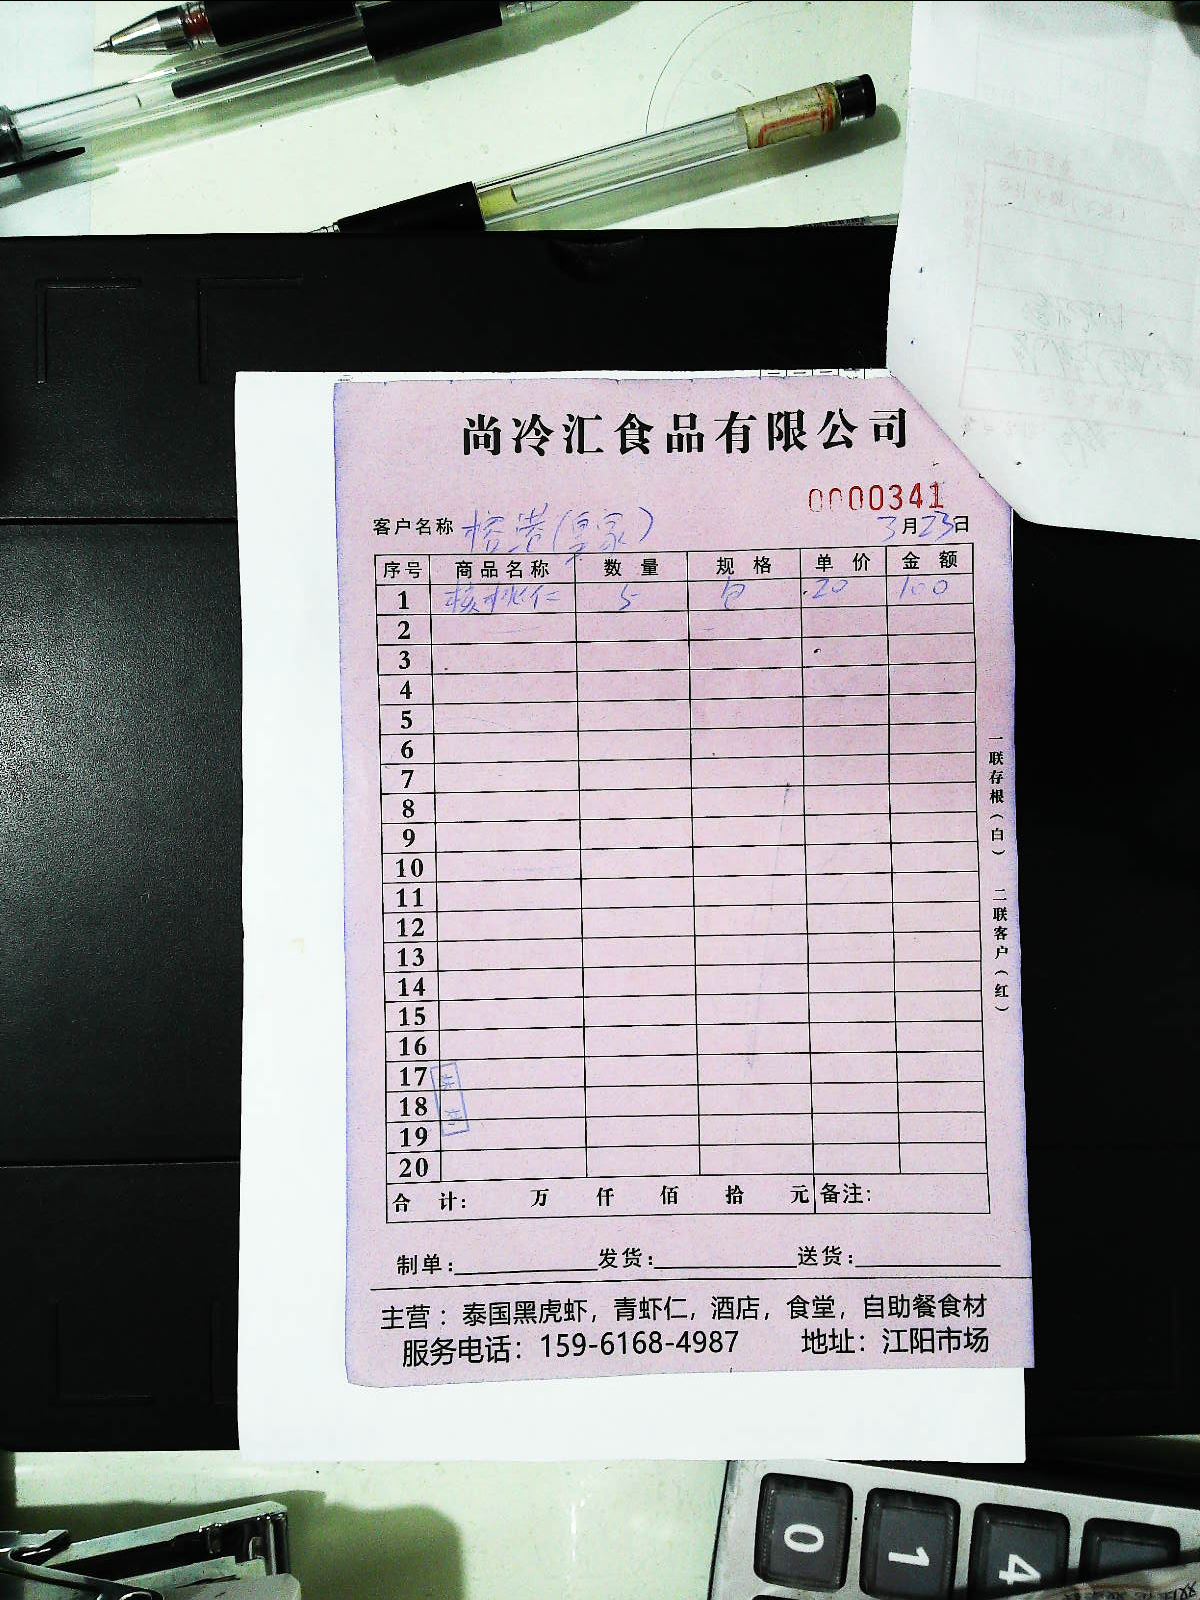 尚冷汇食品有限公司
0000341
客户名称 榕港(皇家) 3月23日
序号 商品名称 数量 规格 单价 金额
1 核桃仁 5 包 20 100
2
3
4
5
6
7
8
9
10
11
12
13
14
15
16
17
18
19
20
合计: 万 仟 佰 拾 元 备注:
制单: 发货: 送货:
主营：泰国黑虎虾，青虾仁，酒店，食堂，自助餐食材
服务电话：159-6168-4987 地址：江阳市场
一联存根(白) 二联客户(红)
0
1
4